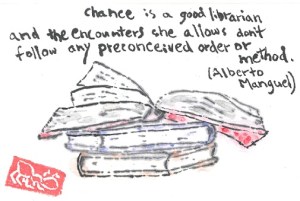 chance is a good librarian
and the encounters she allows don't
follow any preconceived order or
method.
(Alberto
Manguel)